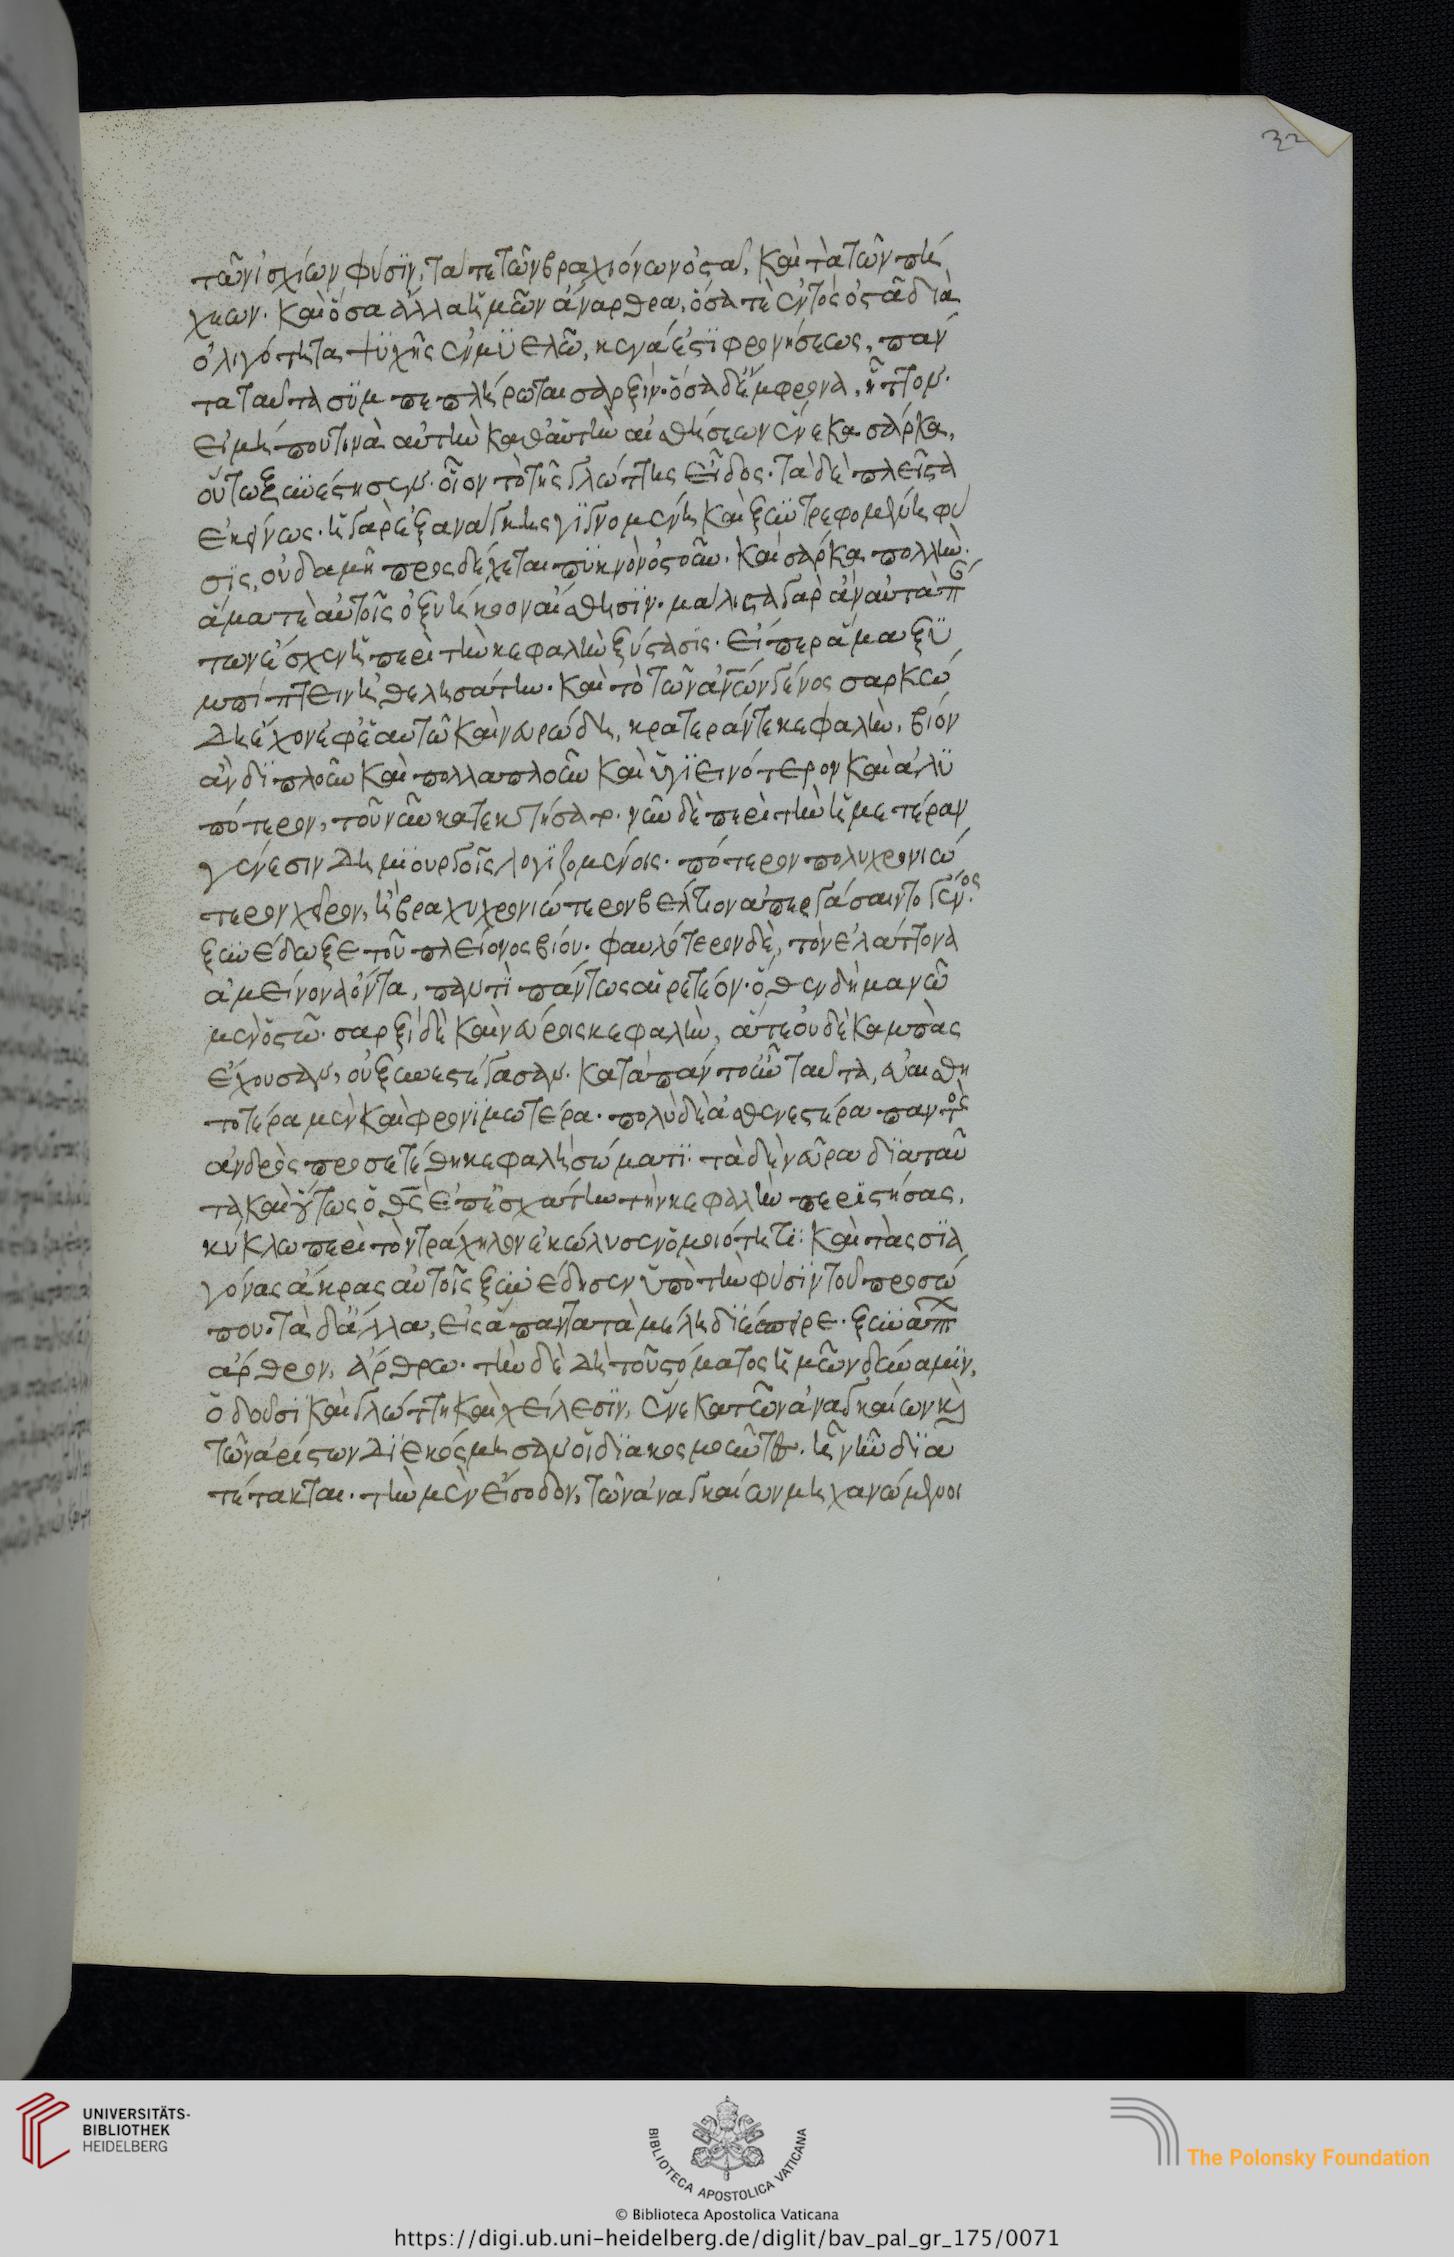 τῶν ἰσχίων φύσϊν, ταύ τε τῶν βραχιόνων ὀστᾶ, καὶ τὰ τῶν πή
χεων. καὶ ὅσα ἄλλα ἡμῶν ἄναρθρα, ὅσα τὲ ἐντὸς ὀστᾶ διὰ
ὀλιγότητα ψϋχῆς ἐν μϋελῶ, κενά ἐστϊ φρονήσεως, πάν
τα ταῦτα σϋμπεπλήρωται σαρξίν· ὅσα δὲ ἔμφρονα, ἧττον·
εἰ μή που τινὰ αὐτὴν καθ' αὑτὴν αἰσθήσεων ἕνεκα σάρκα,
οὕτω ξυνέστησεν· οἷον τὸ τῆς γλώττης εἶδος· τὰ δὲ πλεῖστα
ἐκείνως· ἡ γὰρ ἐξ ἀνάγκης γϊγνομένη καὶ ξυντρεφομένη φύ
σϊς, οὐδαμῆ προσδέχεται πϋκνὸν ὀστοῦν· καὶ σάρκα πολλὴν·
ἅμα τὲ αὐτοῖς ὀξυήκοον αἴσθησϊν· μάλιστα γὰρ ἂν αὐτὰ π
των ἔσχεν ἡ περὶ τὴν κεφαλὴν ξύστασϊς· εἴπερ ἅμα ξϋ
μπίπτειν ἠθελησάτην· καὶ τὸ τῶν ἀνῶν γένος σαρκώ
δη ἔχον ἐφ' ἑαυτῶ καὶ νευρώδη, κρατεράν τε κεφαλὴν, βίον
ἂν δϊπλοῦν καὶ πολλαπλοῦν καὶ ὑγϊεινότερον καὶ ἀλϋ
πότερον, τοῦ νῦν κατεκτήσατο· νῦν δὲ περὶ τὴν ἡμετέραν
γένεσιν δημϊουργοῖς λογϊζομένοις· πότερον πολυχρονιώ
τερον χεῖρον, ἢ βραχυχρονιώτερον βέλτιον ἀπεργάσαιντο γένος·
ξυνέδωξε τοῦ πλείονος βίου· φαυλότερον δὲ, τὸν ἐλάττονα
ἀμείνονα ὄντα, παντϊ πάντως αἱρετέον· ὅθεν δὴ μανῶ
μὲν ὀστῶ· σαρξὶ δὲ καὶ νεύροις κεφαλὴν, ἅτε οὐδὲ καμπὰς
ἔχουσαν, οὐ ξυνεστέγασαν· κατὰ πάντ' οὖν ταῦτα, εὐαισθη
τοτέρα μὲν καὶ φρονϊμωτέρα· πολὺ δὲ ἀσθενεστέρα παντὸς
ἀνδρὸς προσετέθη κεφαλὴ σώματϊ· τὰ δὲ νεῦρα δϊα ταῦ
τα καὶ οὕτως ὁ θς ἐπ' ἐσχάτην τὴν κεφαλὴν περϊστήσας,
κύκλω περὶ τὸν τράχηλον ἐκώλυσεν ὁμοιότητϊ· καὶ τὰς σϊα
γόνας ἄκρας αὐτοῖς ξυνέδησεν ὑπὸ τὴν φύσϊν τοῦ προσώ
που· τὰ δ' ἄλλα, εἰς ἅπαντα τὰ μέλη δϊέσπειρε· ξυνάπτ
ἄρθρον, ἄρθρω· τὴν δὲ δὴ τοῦ στόματος ἡμῶν δύναμϊν,
ὀδοῦσϊ καὶ γλώττη καὶ χείλεσϊν, ἕνεκα τῶν ἀναγκαίων κὶ
τῶν ἀρίστων δϊεκόσμησαν οἱ δϊακοσμοῦντες. ἧ νῦν δϊα
τέτακται· τὴν μὲν εἴσοδον, τῶν ἀναγκαίων μηχανώμενοι
32
UNIVERSITÄTS-
BIBLIOTHEK
HEIDELBERG
BIBLIOTECA APOSTOLICA VATICANA
The Polonsky Foundation
© Biblioteca Apostolica Vaticana
https://digi.ub.uni-heidelberg.de/diglit/bav_pal_gr_175/0071